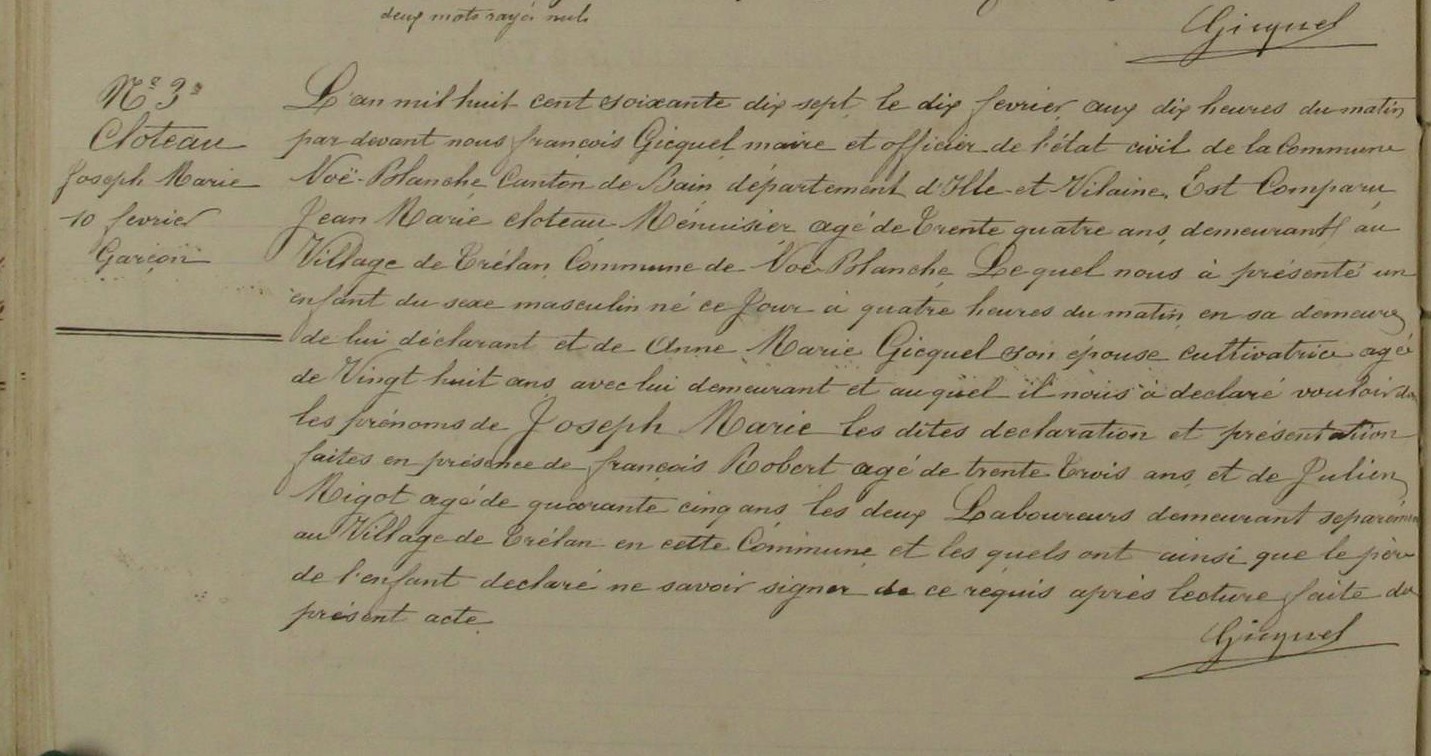 deux mots rayés nuls
Gicquel
N° 3
Cloteau
Joseph Marie
10 fevrier
Garçon
L'an mil huit cent soixante dix sept, le dix fevrier, aux dix heures du matin
par devant nous françois Gicquel maire et officier de l'état civil de la Commune
Noë-Blanche Canton de Bain département d'Ille-et-Vilaine, Est Comparu
Jean Marie cloteau Ménuisier agé de Trente quatre ans, demeurant au
Village de Trélan, Commune de Noë-Blanche, Lequel nous à présenté un
enfant du sexe masculin né ce Jour à quatre heures du matin, en sa demeure
de lui déclarant et de Anne Marie Gicquel son épouse cultivatrice agé
de Vingt huit ans avec lui demeurant et auquel il nous à declaré vouloir
les prénoms de Joseph Marie les dites declaration et présentation
faites en présence de françois Robert agé de trente trois ans, et de Julien
Migot agé de quarante cinq ans les deux Laboureurs demeurant séparemen
au Village de Trélan en cette Commune, et les quels ont ainsi que le père
de l'enfant declaré ne savoir signer de ce réquis après lecture faite du
présent acte.
Gicquel